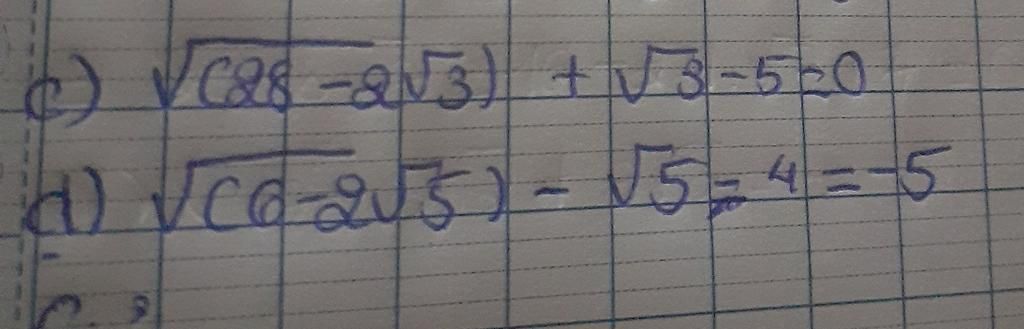 c) √(28-2√3) + √3-5=0
d) √(6-2√5) - √5-4=-5